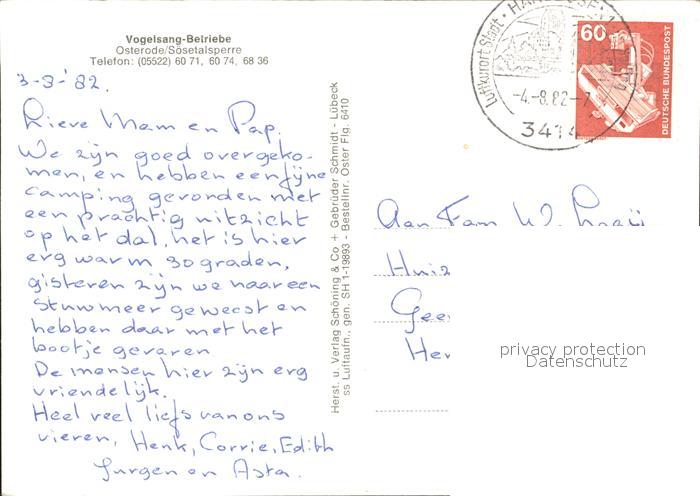 Vogelsang-Betriebe
Osterode/Sösetalsperre
Telefon: (05522) 60 71, 60 74, 68 36
3-8-'82.
Lieve Mam en Pap.
We zijn goed overgeko-
men, en hebben een fijne
camping gevonden met
een prachtig uitzicht
op het dal, het is hier
erg warm 30 graden,
gisteren zijn we naar een
stuwmeer geweest en
hebben daar met het
bootje gevaren.
De mensen hier zijn erg
vriendelijk.
Heel veel liefs van ons
vieren, Henk, Corrie, Edith
Jurgen en Asta.
Herst. u. Verlag Schöning & Co + Gebrüder Schmidt - Lübeck
ss Luftaufn., gen. SH 1-19893 - Bestellnr. Oster Flg. 6410
Luftkurort Stadt
-4.-8.82-7
341
60
DEUTSCHE BUNDESPOST
Aan Fam W.
Huiz
Gee
Her
privacy protection
Datenschutz